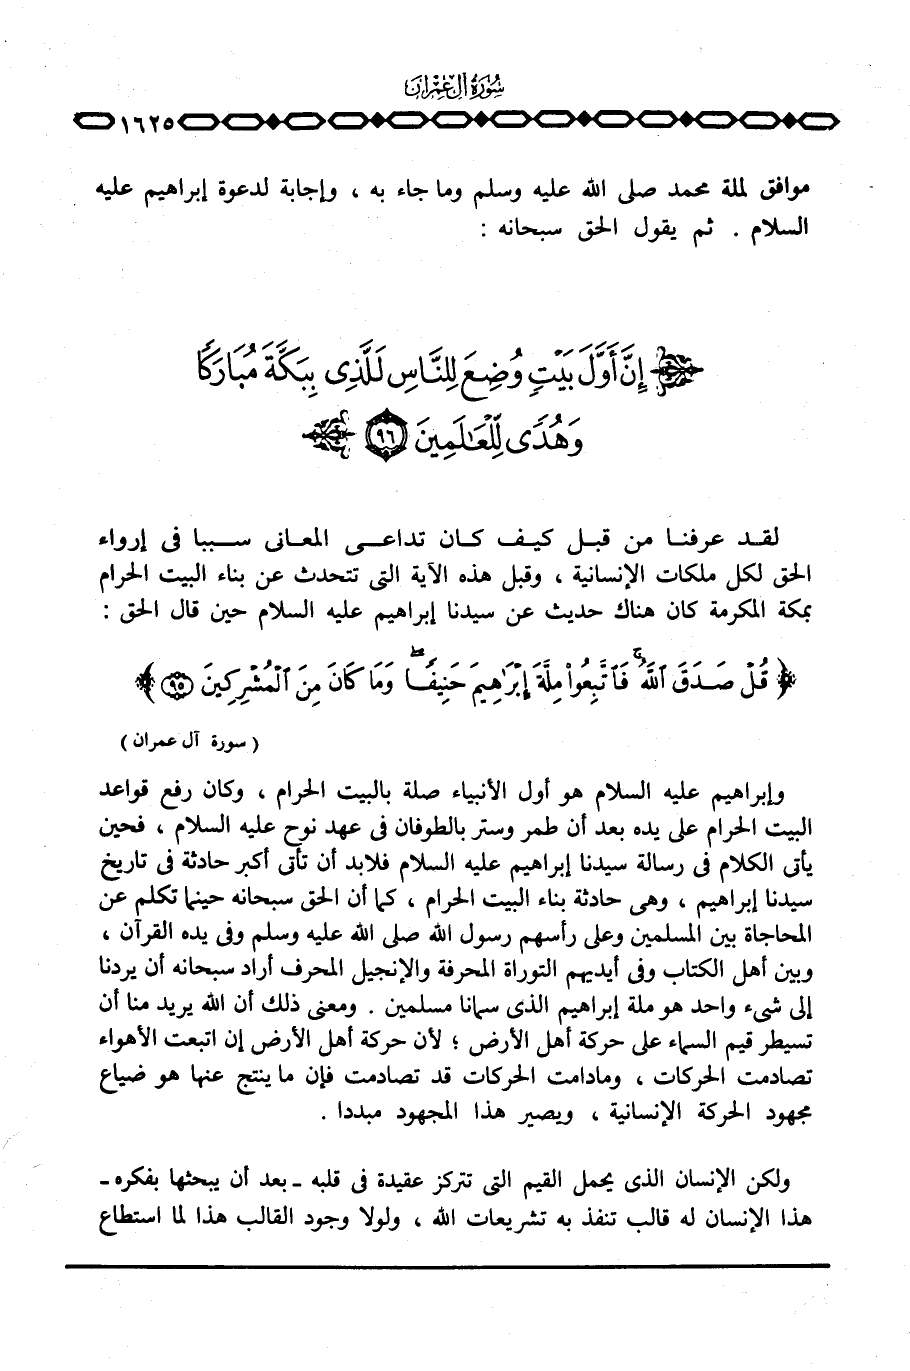 سُورَةُ آلِ عِمْرَانَ
١٦٢٥
موافق لملة محمد صلى الله عليه وسلم وما جاء به ، وإجابة لدعوة إبراهيم عليه
السلام . ثم يقول الحق سبحانه :
إِنَّ أَوَّلَ بَيْتٍ وُضِعَ لِلنَّاسِ لَلَّذِى بِبَكَّةَ مُبَارَكًا
وَهُدًى لِّلْعَالَمِينَ ٩٦
لقد عرفنا من قبل كيف كان تداعى المعانى سببا فى إرواء
الحق لكل ملكات الإنسانية ، وقبل هذه الآية التى تتحدث عن بناء البيت الحرام
بمكة المكرمة كان هناك حديث عن سيدنا إبراهيم عليه السلام حين قال الحق :
﴿ قُلْ صَدَقَ ٱللَّهُ ۗ فَٱتَّبِعُوا۟ مِلَّةَ إِبْرَٰهِيمَ حَنِيفًا ۖ وَمَا كَانَ مِنَ ٱلْمُشْرِكِينَ ٩٥ ﴾
( سورة آل عمران )
وإبراهيم عليه السلام هو أول الأنبياء صلة بالبيت الحرام ، وكان رفع قواعد
البيت الحرام على يده بعد أن طمر وستر بالطوفان فى عهد نوح عليه السلام ، فحين
يأتى الكلام فى رسالة سيدنا إبراهيم عليه السلام فلابد أن تأتى أكبر حادثة فى تاريخ
سيدنا إبراهيم ، وهى حادثة بناء البيت الحرام ، كما أن الحق سبحانه حينما تكلم عن
المحاجاة بين المسلمين وعلى رأسهم رسول الله صلى الله عليه وسلم وفى يده القرآن ،
وبين أهل الكتاب وفى أيديهم التوراة المحرفة والإنجيل المحرف أراد سبحانه أن يردنا
إلى شىء واحد هو ملة إبراهيم الذى سمانا مسلمين . ومعنى ذلك أن الله يريد منا أن
تسيطر قيم السماء على حركة أهل الأرض ؛ لأن حركة أهل الأرض إن اتبعت الأهواء
تصادمت الحركات ، ومادامت الحركات قد تصادمت فإن ما ينتج عنها هو ضياع
مجهود الحركة الإنسانية ، ويصير هذا المجهود مبددا .
ولكن الإنسان الذى يحمل القيم التى تتركز عقيدة فى قلبه ـ بعد أن يبحثها بفكره ـ
هذا الإنسان له قالب تنفذ به تشريعات الله ، ولولا وجود القالب هذا لما استطاع